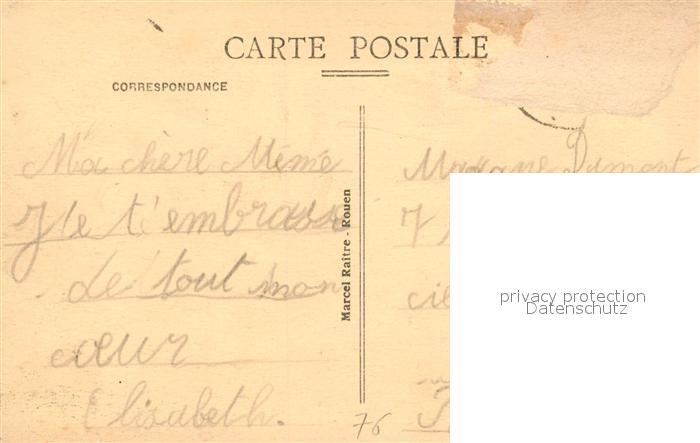 CARTE POSTALE
CORRESPONDANCE
Ma chère Mémé
Je t'embrasse
de tout mon
cœur
Elisabeth.
Marcel Raître - Rouen
76
Dumont
7
privacy protection
Datenschutz